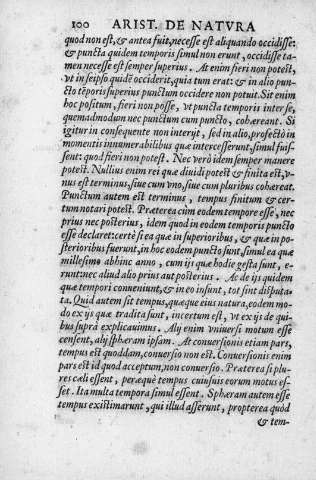 100 ARIST. DE NATVRA
quod non est, & antea fuit, necesse est aliquando occidisse:
& puncta quidem temporis simul non erunt, occidisse ta-
men necesse est semper superius. At enim fieri non potest,
vt in seipso quidē occiderit, quia tum erat: & in alio pun-
cto tēporis superius punctum occidere non potuit. Sit enim
hoc positum, fieri non posse, vt puncta temporis inter se,
quemadmodum nec punctum cum puncto, cohæreant. Si
igitur in consequente non interijt, sed in alio, profectò in
momentis innumerabilibus quæ intercesserunt, simul fuis-
sent: quod fieri non potest. Nec verò idem semper manere
potest. Nullius enim rei quæ diuidi potest & finita est, v-
nus est terminus, siue cum vno, siue cum pluribus cohæreat.
Punctum autem est terminus, tempus finitum & cer-
tum notari potest. Præterea cùm eodem tempore esse, nec
prius nec posterius, idem quod in eodem temporis puncto
esse declaret: certè si ea quæ in superioribus, & quæ in po-
sterioribus fuerunt, in hoc eodem puncto sunt, simul ea quæ
millesimo abhinc anno, cum ijs quæ hodie gesta sunt, e-
runt: nec aliud alio prius aut posterius. Ac de ijs quidem
quæ tempori conueniunt, & in eo insunt, tot sint disputa-
ta. Quid autem sit tempus, quæque eius natura, eodem mo-
do ex ijs quæ tradita sunt, incertum est, vt ex ijs de qui-
bus suprà explicauimus. Alij enim vniuersi motum esse
censent, alij sphæram ipsam. At conuersionis etiam pars,
tempus est quoddam, conuersio non est. Conuersionis enim
pars est id quod acceptum, non conuersio. Præterea si plu-
res cæli essent, peræquè tempus cuiusuis eorum motus es-
set. Ita multa tempora simul essent. Sphæram autem esse
tempus existimarunt, qui illud asserunt, propterea quòd
& tem-